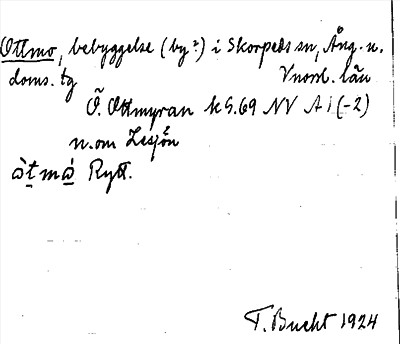 Ottmo, bebyggelse (by?) i Skorpeds sn, Ång. n.
doms. tg Vnorrl. län
Ö. Ottmyran k G.69 NV A i (-2)
n. om Lesjön
òtmò Rytt.
T. Bucht 1924